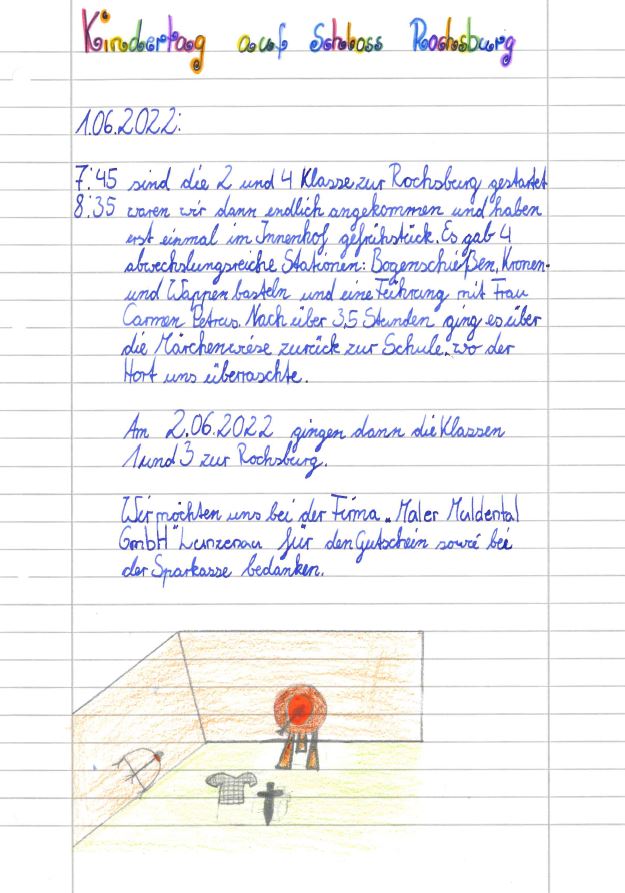 Kindertag auf Schloss Rochsburg
1.06.2022:
7:45 sind die 2 und 4 Klasse zur Rochsburg gestartet
8:35 waren wir dann endlich angekommen und haben
erst einmal im Innenhof gefrühstück. Es gab 4
abwechslungsreiche Stationen: Bogenschießen, Kronen-
und Wappen basteln und eine Führung mit Frau
Carmen Petrus. Nach über 3,5 Stunden ging es über
die Märchenwiese zurück zur Schule, wo der
Hort uns überraschte.
Am 2.06.2022 gingen dann die Klassen
1 und 3 zur Rochsburg.
Wir möchten uns bei der Firma „Maler Muldental
GmbH" Lunzenau für den Gutschein sowie bei
der Sparkasse bedanken.